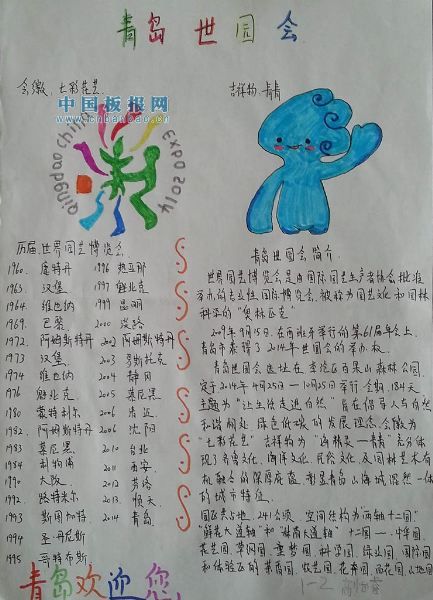 青岛世园会
会徽:七彩花艺
吉祥物:青青
中国板报网
www.cnbanbao.cn
qingdao china EXPO2014
历届世界园艺博览会
1960. 鹿特丹 1996 热那亚
1963. 汉堡 1997 魁北克
1964. 维也纳 1999 昆明
1969. 巴黎 2000 淡路
1972. 阿姆斯特丹 2002 阿姆斯特丹
1973 汉堡 2003 罗斯托克
1974 维也纳 2004 静冈
1976 魁北克 2005 慕尼黑
1980 蒙特利尔 2006 清迈
1982 阿姆斯特丹 2006 沈阳
1983 慕尼黑 2010 台北
1984 利物浦 2011 西安
1990 大阪 2012 芬洛
1992. 路特米尔 2013 顺天
1993 斯图加特 2014 青岛
1994 圣·丹尼斯
1995 哥特布斯
青岛欢迎您
青岛世园会简介
世界园艺博览会是由国际园艺生产者协会批准
举办的专业性国际博览会,被称为园艺文化和园林
科学的“奥林匹克”
2009年9月15日,在西班牙举行的第61届年会上,
青岛市赢得了2014年世园会的举办权。
青岛世园会选址在李沧区百果山森林公园,
定于2014年4月25日—10月25日举行,会期184天
主题为“让生活走进自然”旨在倡导人与自然
和谐相处,绿色低碳的发展理念,会徽为
“七彩花艺”吉祥物为“海精灵—青青”充分体
现了名宫文化、海洋文化、民俗文化及园林艺术有
机融合的深厚底蕴,彰显青岛山海城浑然一体
的城市特征。
园区共占地241公顷,空间结构为“两轴十二园”
“鲜花大道轴”和“林荫大道轴”十二园——中华园、
花艺园、草纲园、童梦园、科学园、绿业园、国际园
和体验区的茶香园、农艺园、花卉园、百花园、山地园
1-2